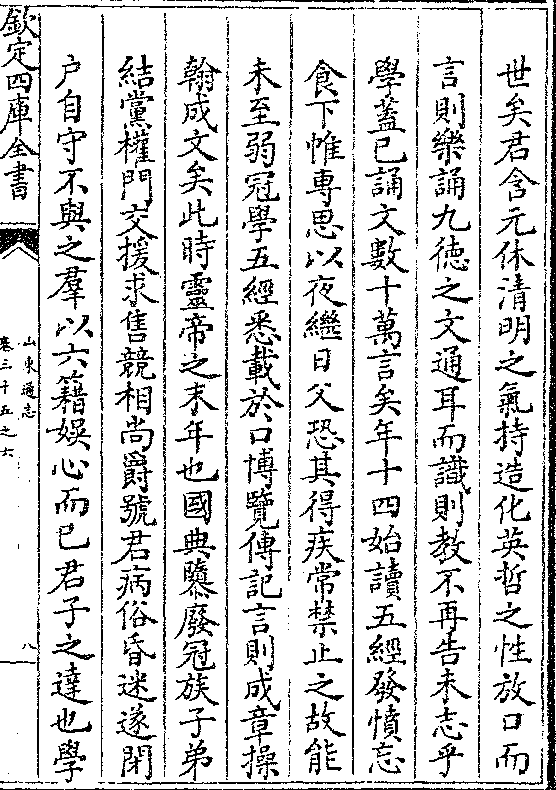 世矣君含元休清明之氣持造化英哲之性放口而
言則樂誦九德之文通耳而識則教不再告未志乎
學蓋已誦文數十萬言矣年十四始讀五經發憤忘
食下帷專思以夜繼日父恐其得疾常禁止之故能
未至弱冠學五經悉載於口博覽傳記言則成章操
翰成文矣此時靈帝之末年也國典隳廢冠族子弟
結黨權門交援求售競相尚爵號君病俗昏迷遂閉
户自守不與之羣以六籍娛心而已君子之達也學
欽定四庫全書
山東通志
卷三十五之六
八